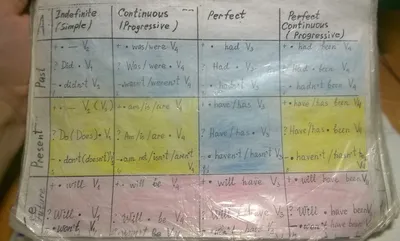 Indefinite
(Simple)
Continuous
(Progressive)
Perfect
Perfect
Continuous
(Progressive)
Past
+ • — V₂
? Did • V₁
- • didn't V₁
+ • was/were V₄
? Was/were • V₄
- • wasn't/weren't V₄
+ • had V₃
? Had • V₃
- • hadn't V₃
+ • had been V₄
? Had • been V₄
- • hadn't been V₄
Present
? Do (Does) • V₁
- • don't (doesn't) V₁
+ • am/is/are V₄
? Am/is/are • V₄
+ • have/has V₃
? Have/has • V₃
- • haven't/hasn't V₃
+ • have/has been V₄
? Have/has • been V₄
- • haven't/hasn't been V₄
+ • will V₁
? Will • V₁
- • won't V₁
+ • will be V₄
? Will • be V₄
- • won't be V₄
+ • will have V₃
? Will • have V₃
+ • will have been V₄
? Will • have been V₄
- • won't have been V₄